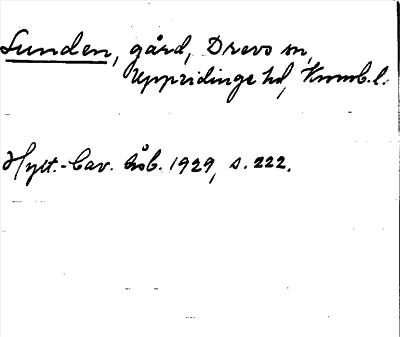 Lunden, gård, Drevs sn,
Uppvidinge hd, Kronob.l.
Hylt.-Cav. håb. 1929, s. 222.